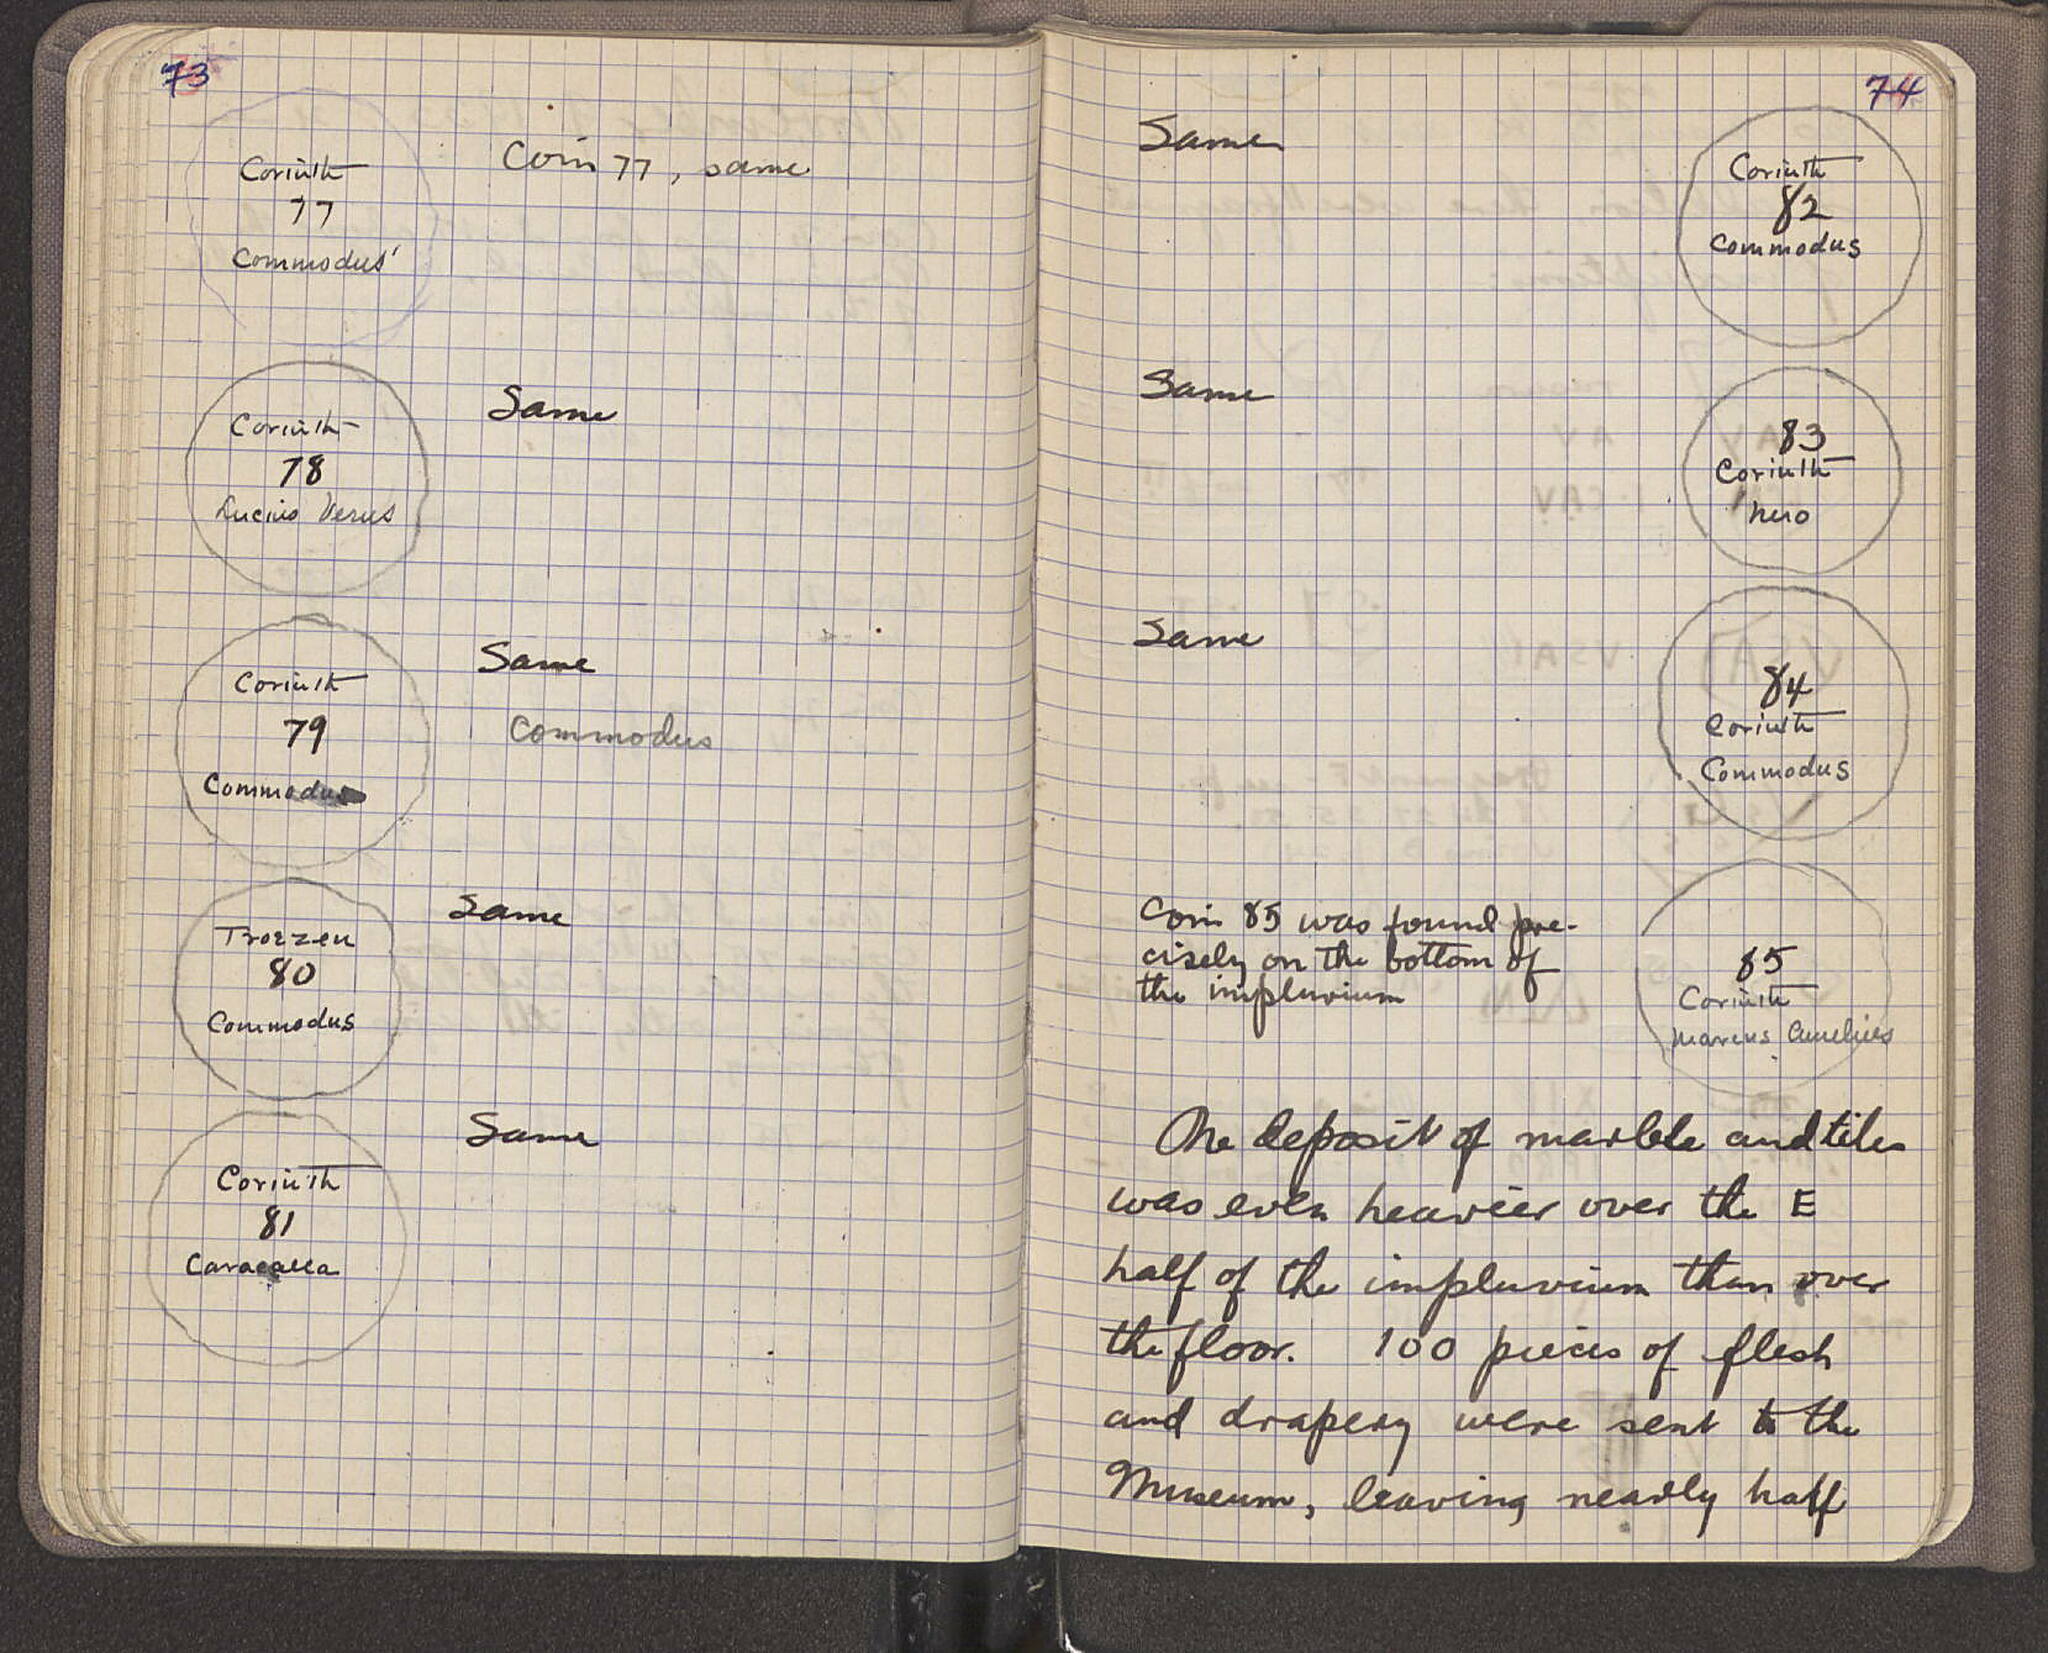 73
Corinth
77
Commodus
Coin 77, same
Corinth
78
Lucius Verus
Same
Corinth
79
Commodus
Same
Commodus
Troezen
80
Commodus
Same
Corinth
81
Caracalla
Same
74
Same
Corinth
82
Commodus
Same
83
Corinth
Nero
Same
84
Corinth
Commodus
Coin 85 was found pre-
cisely on the bottom of
the impluvium
85
Corinth
Marcus Aurelius
The deposit of marble and tiles
was even heavier over the E
half of the impluvium than over
the floor. 100 pieces of flesh
and drapery were sent to the
Museum, leaving nearly half